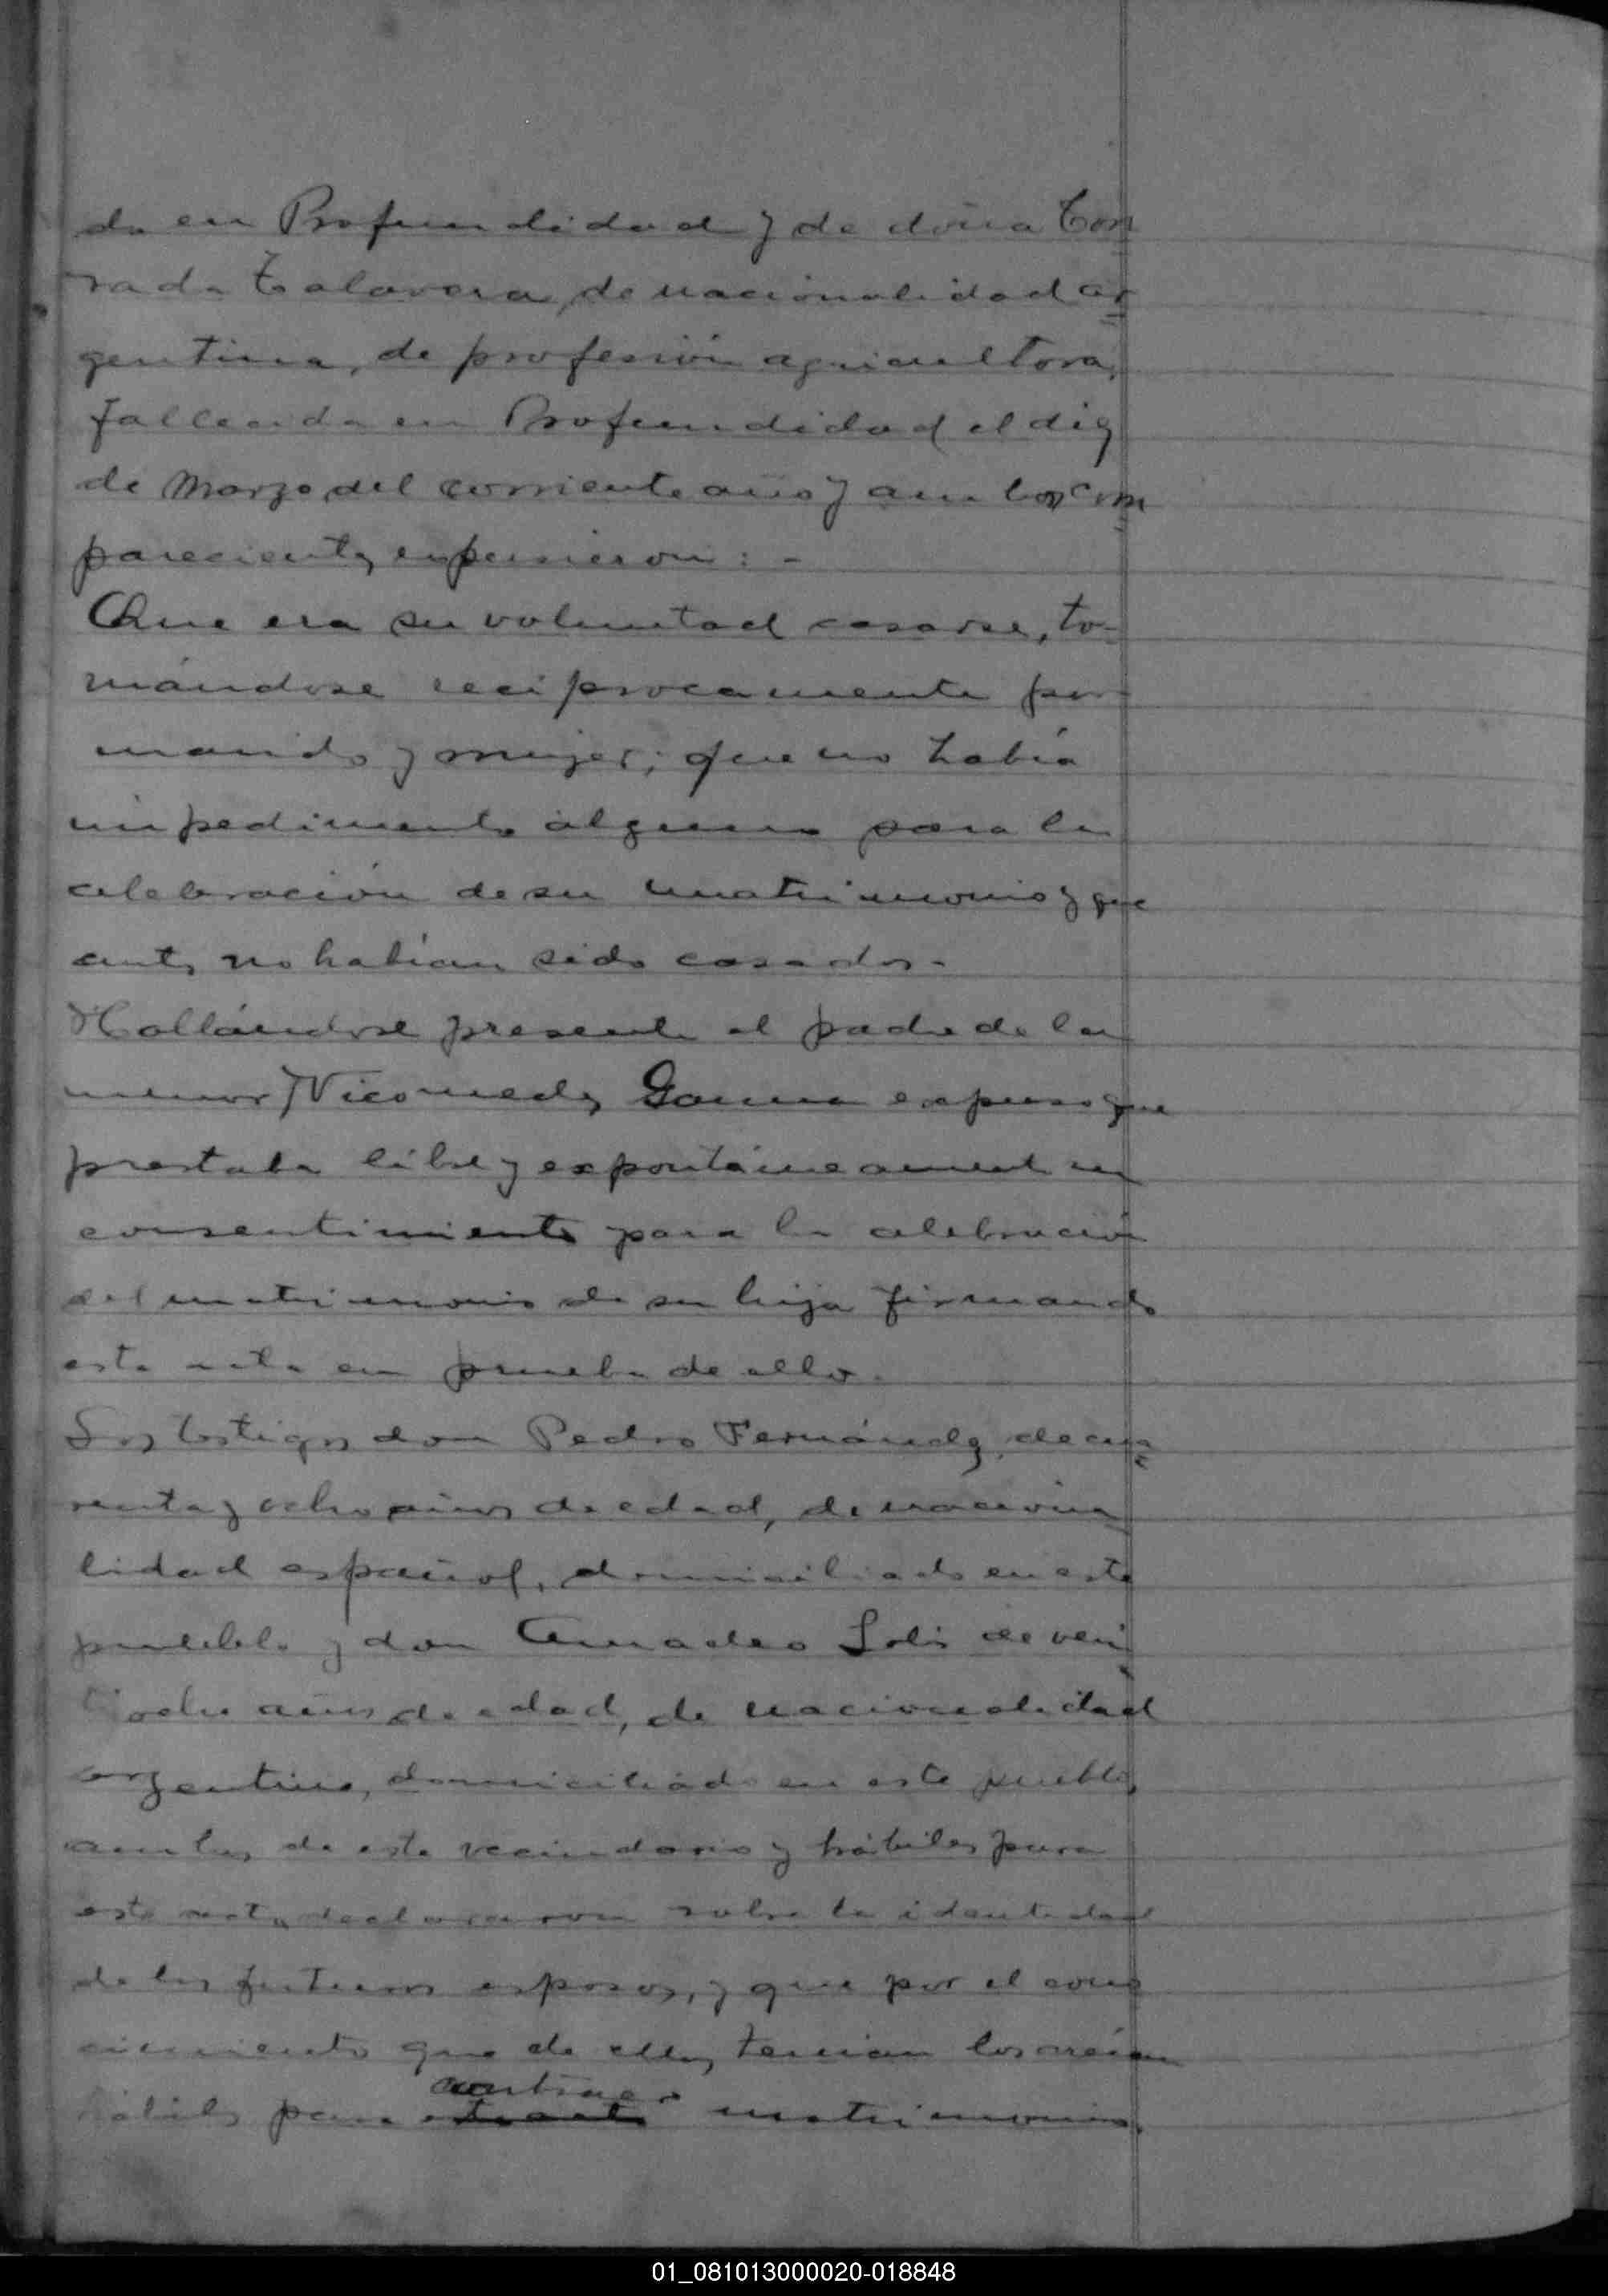 do en Profundidad y de doña Con
rada Talavera, de nacionalidad ar
gentina, de profesión agricultora,
fallecida en Profundidad el diez
de Marzo del corriente año y ambos com
parecientes expusieron: -
Que era su voluntad casarse, to-
mándose reciprocamente por
marido y mujer; que no había
impedimento alguno para la
celebración de su matrimonio y que
antes no habían sido casados.-
Hallándose presente el padre de la
menor Nicomedes Gauna expuso que
prestaba libre y expontáneamente su
consentimiento para la celebración
del matrimonio de su hija firmando
esta acta en prueba de ello.
Los testigos don Pedro Fernández, de cua
renta y ocho años de edad, de naciona
lidad español, domiciliado en este
pueblo y don Amadeo Solis de vein
tiocho años de edad, de nacionalidad
argentino, domiciliado en este pueblo,
ambos de este vecindario y hábiles para
este acto, declararon sobre la identidad
de los futuros esposos, y que por el cono
cimiento que de ellos tenían los creían
contraer
hábiles para matrimonio.
01_081013000020-018848